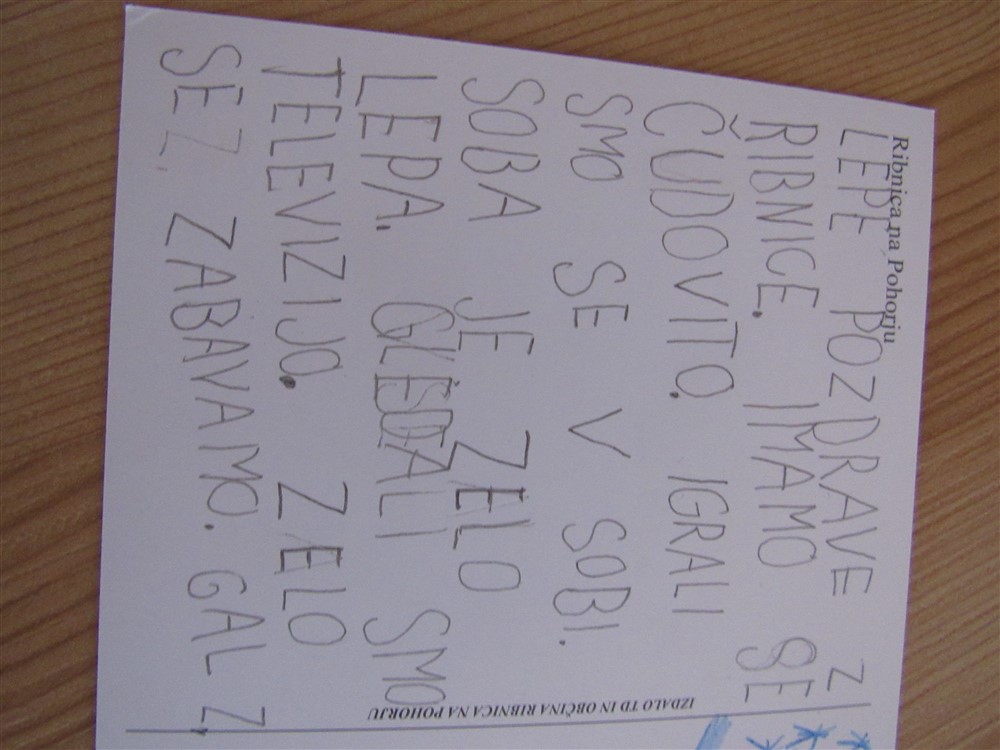 Ribnica na Pohorju
LEPE POZDRAVE Z
RIBNICE. IMAMO SE
ČUDOVITO. IGRALI
SMO SE V SOBI.
SOBA JE ZELO
LEPA. GLEDALI SMO
TELEVIZIJO. ZELO
SE ZABAVAMO. GAL Z,
IZDALO TD IN OBČINA RIBNICA NA POHORJU